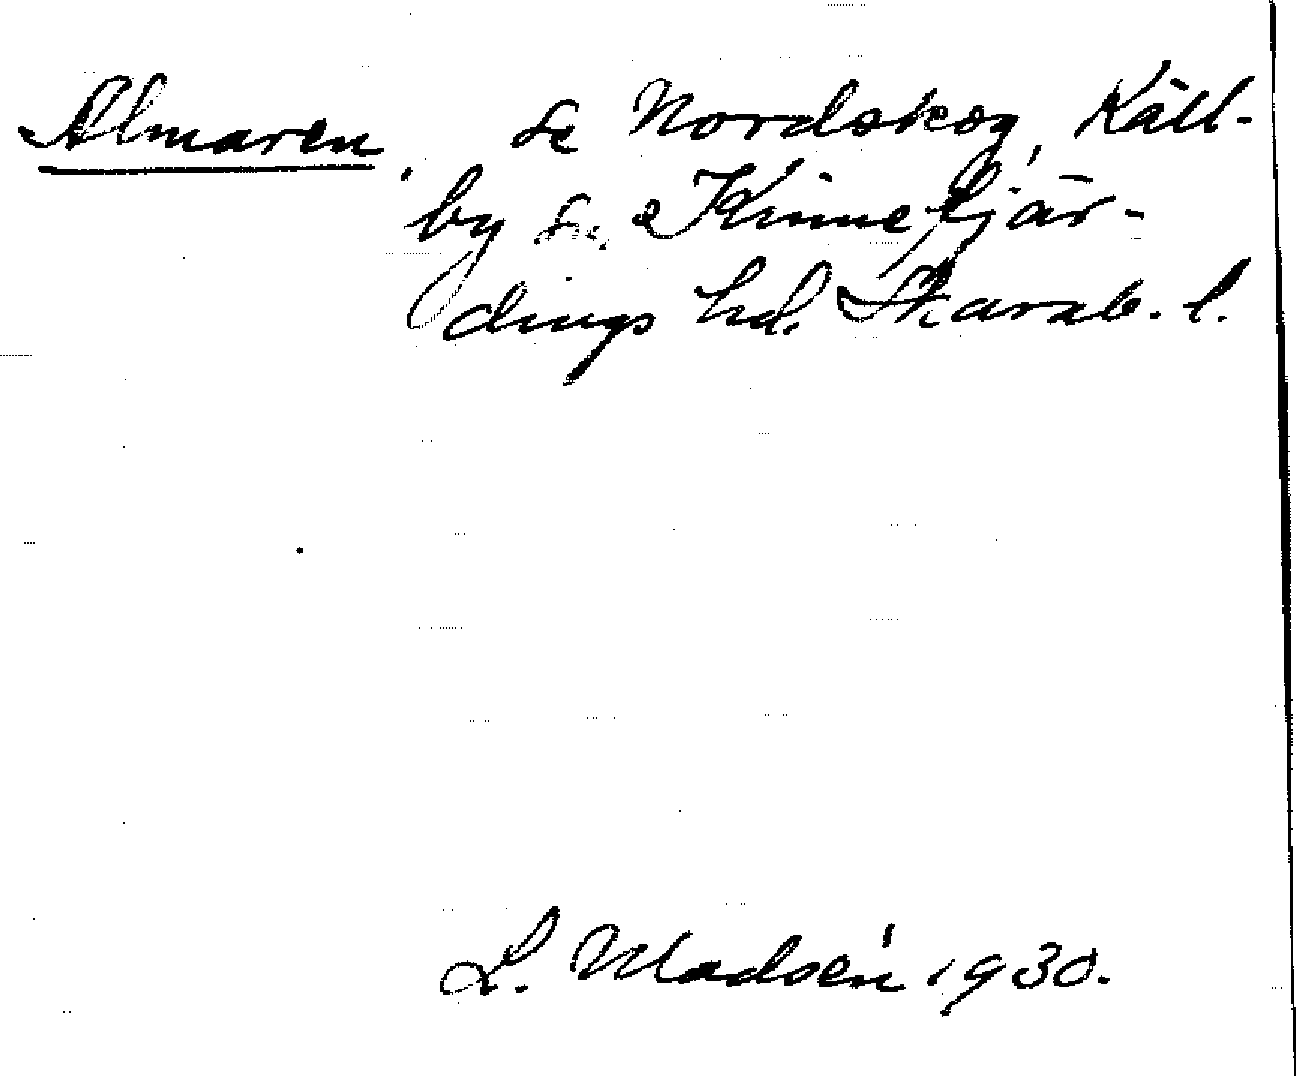 Almaren, se Nordskog, Käll-
by sn, Kinnefjär-
dings hd. Skarab. l.
L. Madsén 1930.